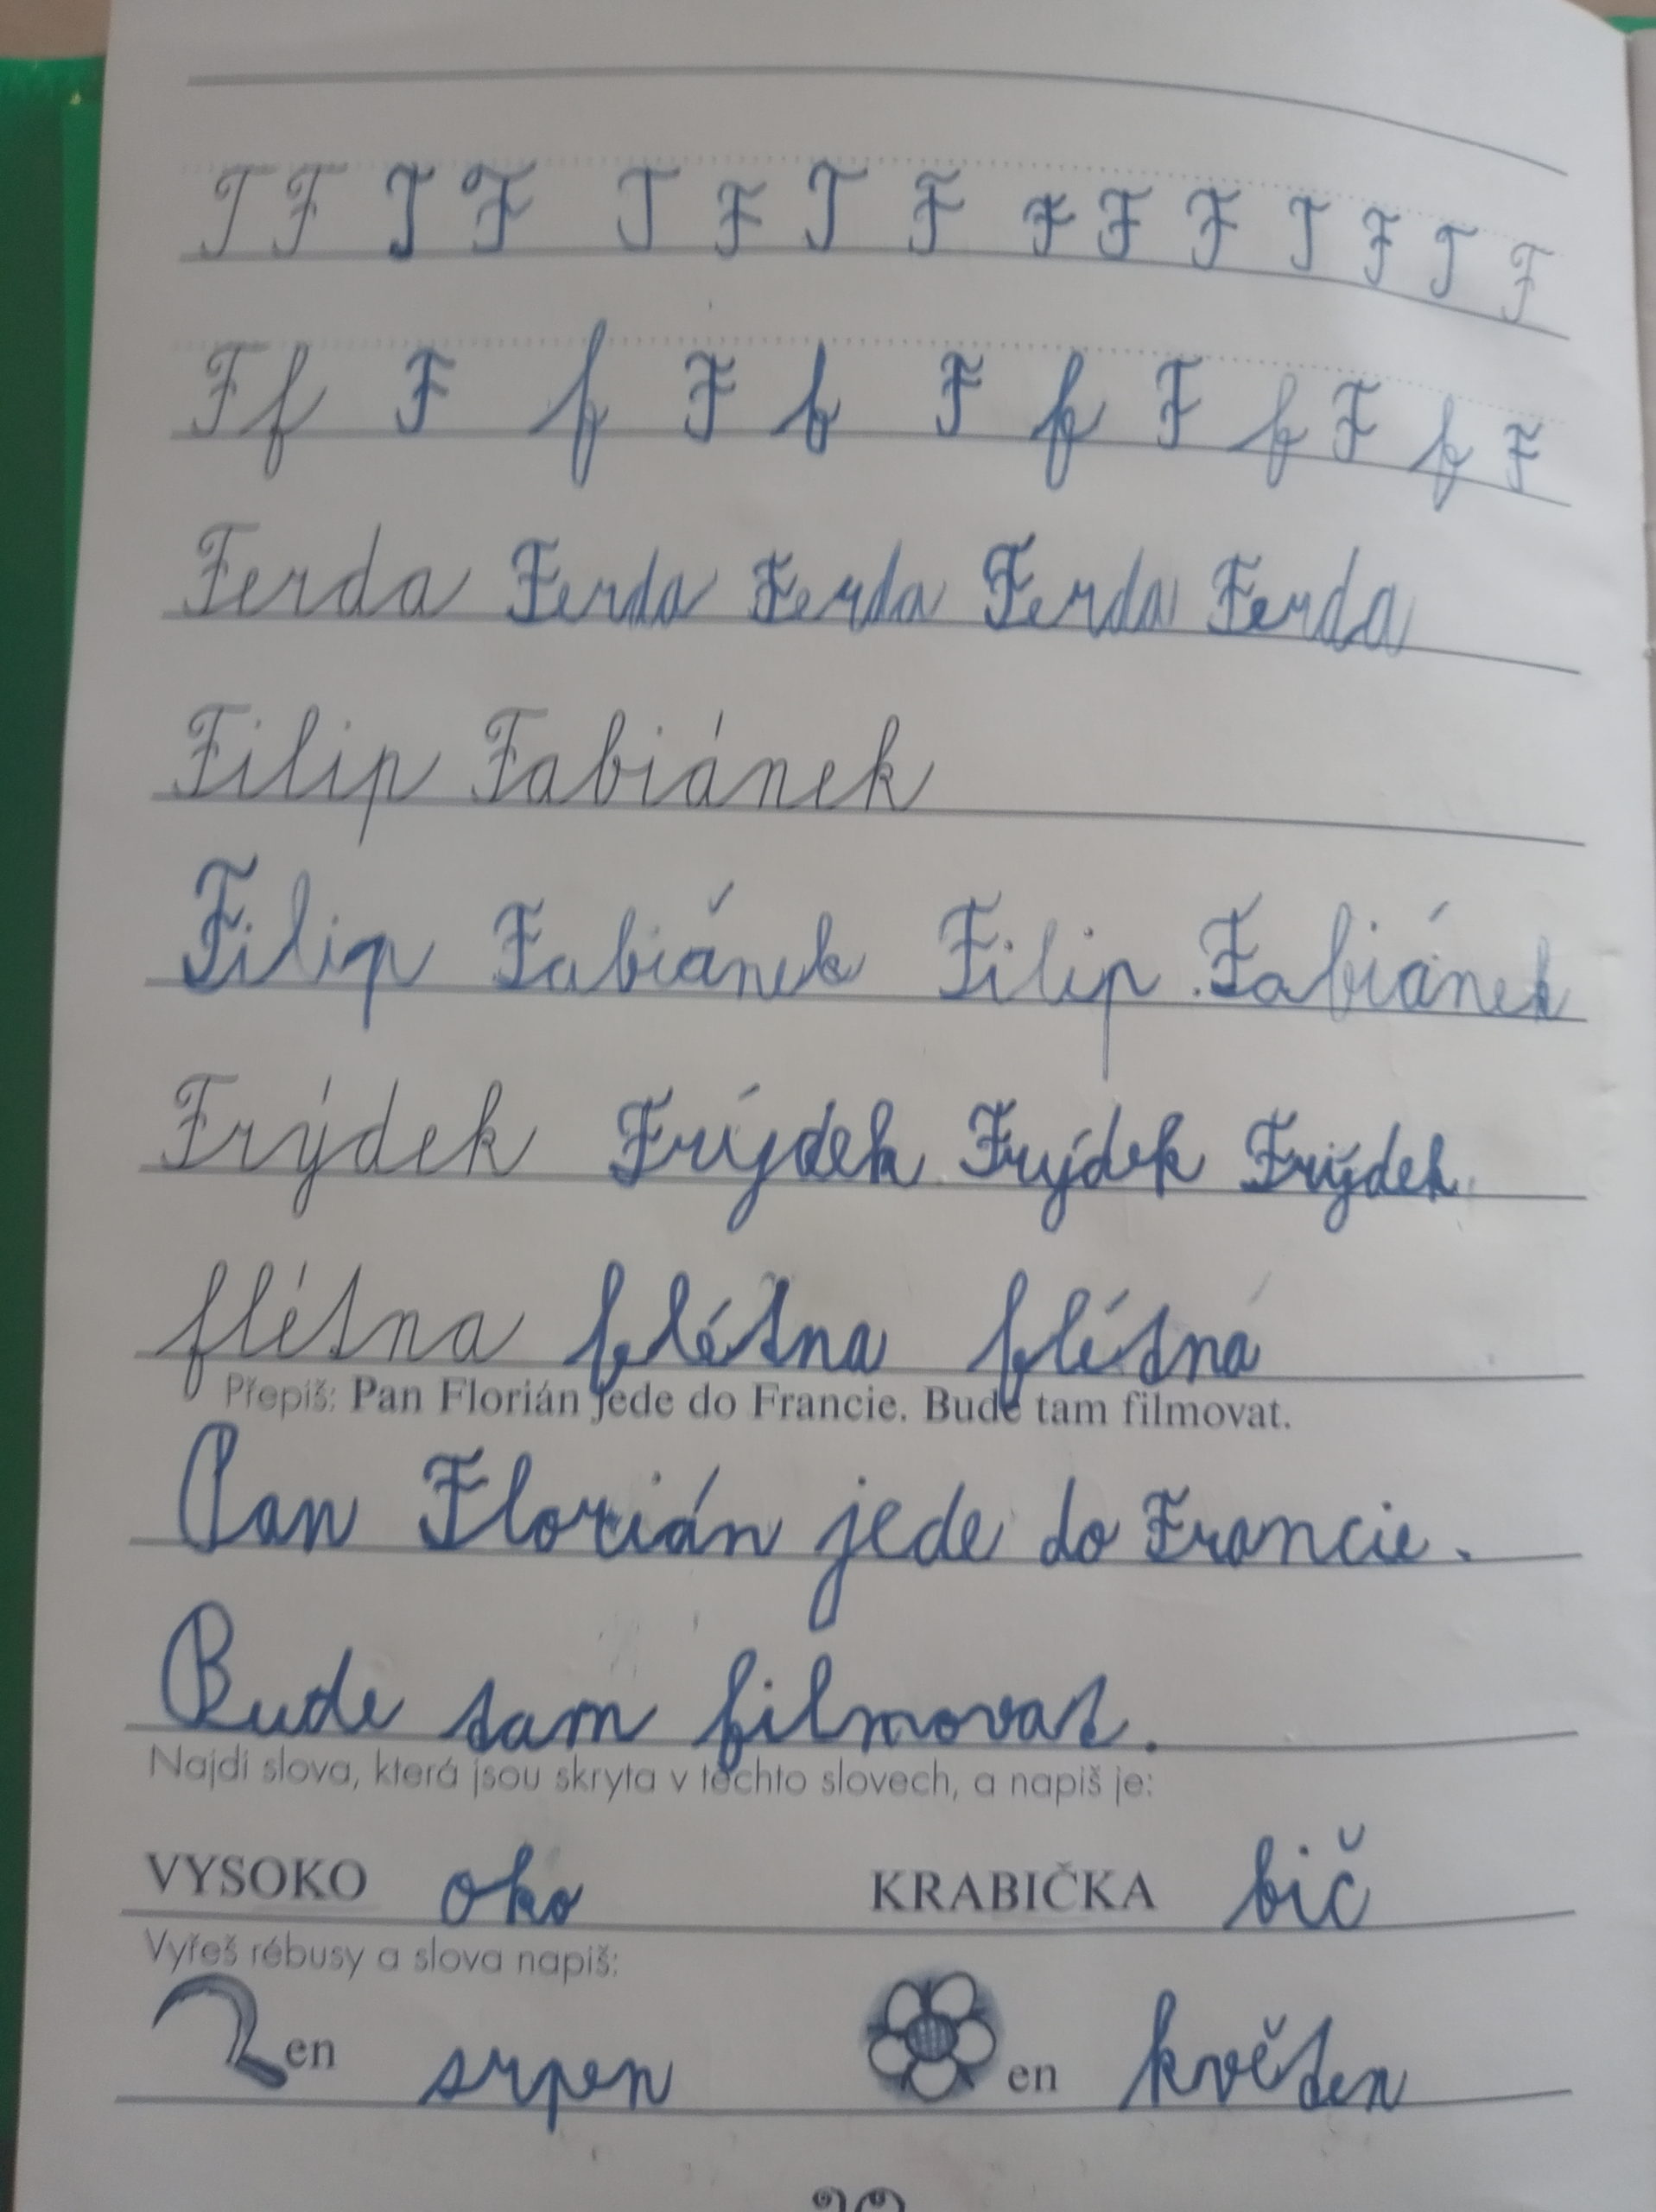 T F T F T F T F F F F T F T F
F f F f F f F f F f F f F
Ferda Ferda Ferda Ferda Ferda
Filip Fabiánek
Filip Fabiánek Filip Fabiánek
Frýdek Frýdek Frýdek Frýdek
flétna flétna flétna
Přepiš: Pan Florián jede do Francie. Bude tam filmovat.
Pan Florián jede do Francie.
Bude tam filmovat.
Najdi slova, která jsou skryta v těchto slovech, a napiš je:
VYSOKO oko KRABIČKA bič
Vyřeš rébusy a slova napiš:
en srpen en květen